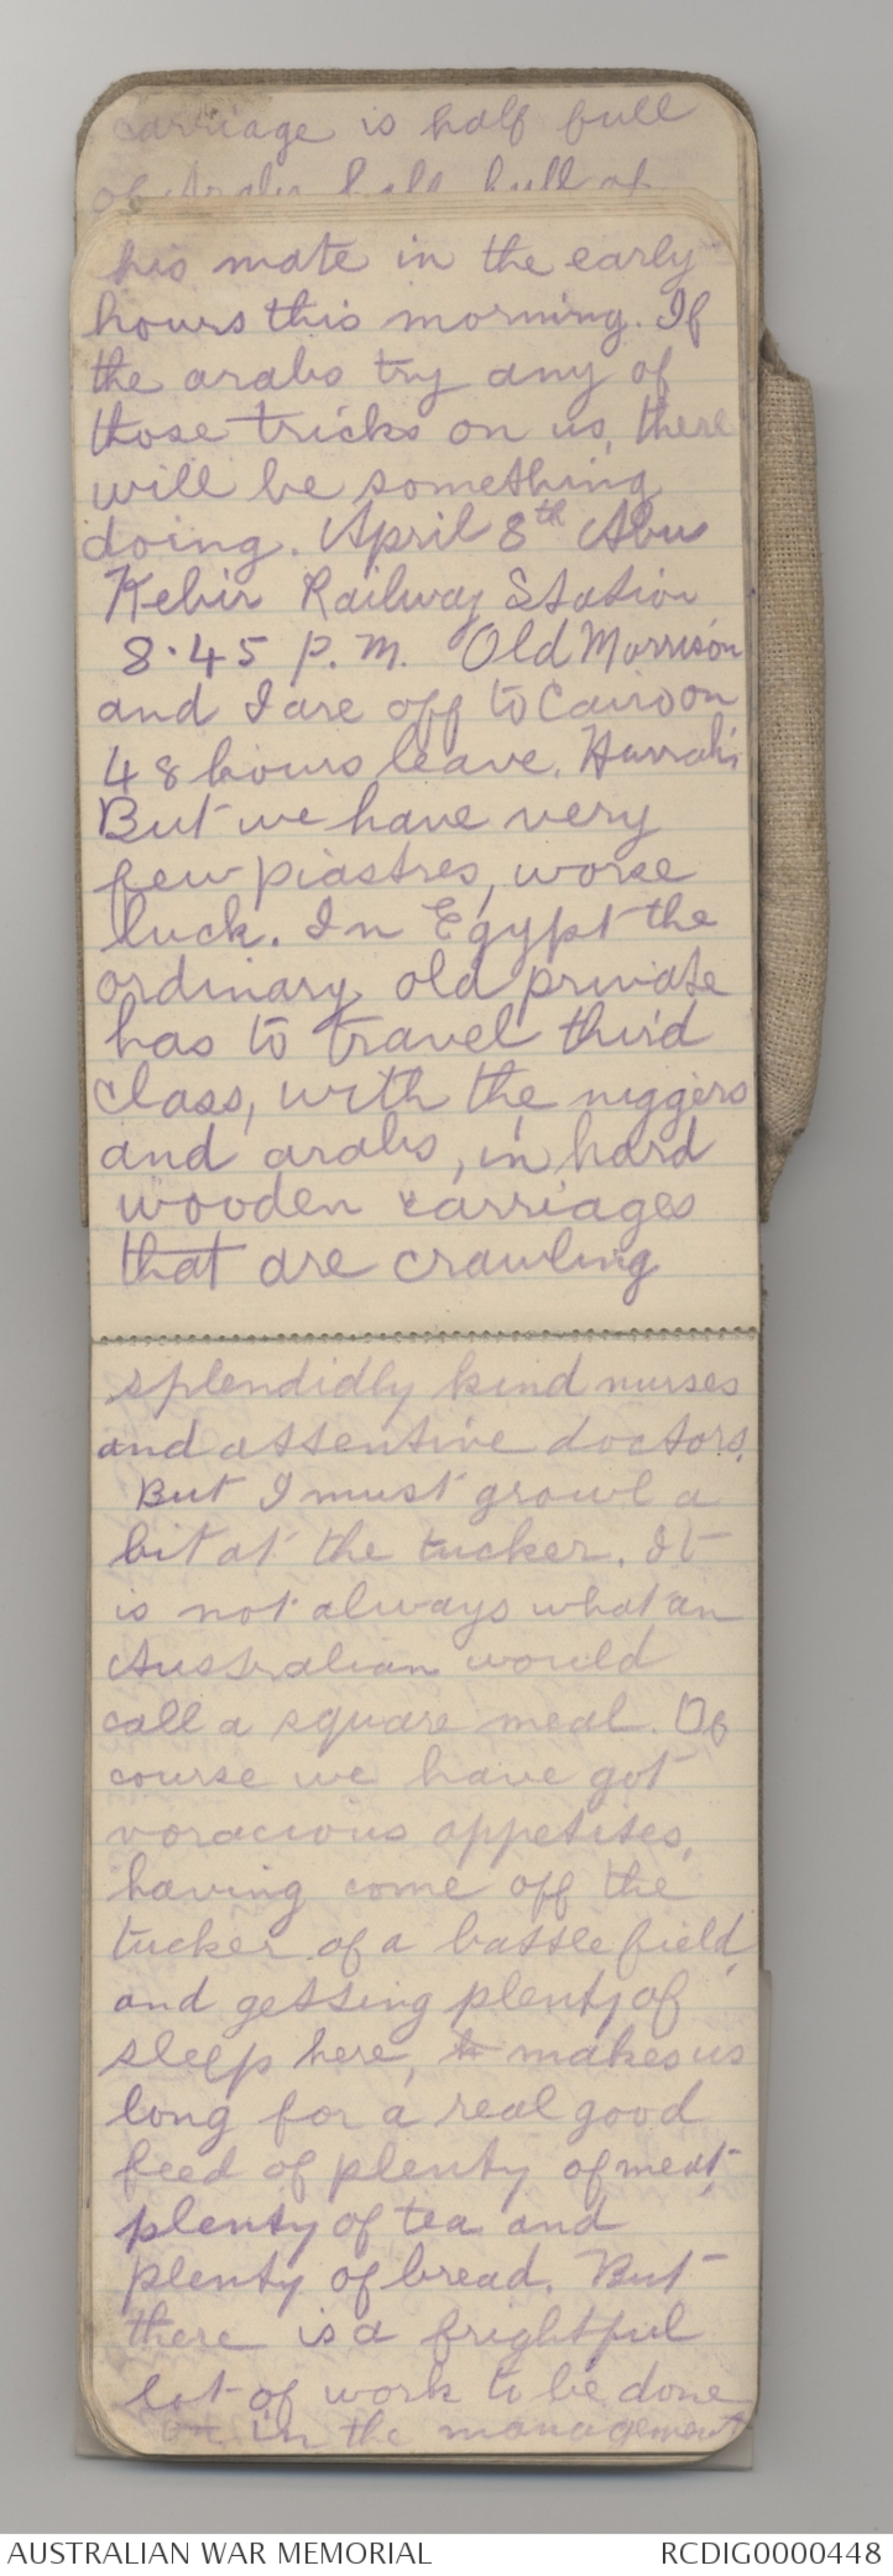 carriage is half full
of
his mate in the early
hours this morning. If
the arabs try any of
those tricks on us, there
will be something
doing. April 8th Abu
Kebir Railway Station
8.45 p.m. Old Morrison
and I are off to Cairo on
48 hours leave. Hurrah!
But we have very
few piastres, worse
luck. In Egypt the
ordinary old private
has to travel third
class, with the niggers
and arabs, in hard
wooden carriages
that are crawling
splendidly kind nurses
and attentive doctors.
But I must growl a
bit at the tucker. It
is not always what an
Australian would
call a square meal. Of
course we have got
voracious appetites,
having come off the
tucker of a battlefield,
and getting plenty of
sleep here, makes us
long for a real good
feed of plenty of meat,
plenty of tea and
plenty of bread. But
there is a frightful
lot of work to be done
in the management
AUSTRALIAN WAR MEMORIAL
RCDIG0000448